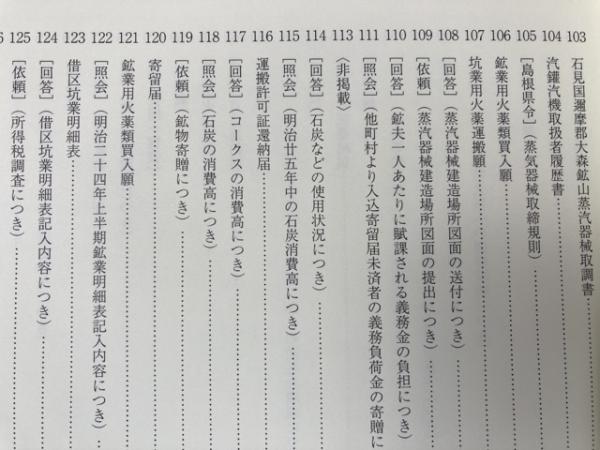 103 石見国邇摩郡大森鉱山蒸汽器械取調書
104 汽鑵汽機取扱者履歴書
105 [島根県令](蒸気器械取締規則)
106 鉱業用火薬類買入願
107 坑業用火薬運搬願
108 [回答](蒸汽器械建造場所図面の送付につき)
109 [依頼](蒸汽器械建造場所図面の提出につき)
110 [回答](鉱夫一人あたりに賦課される義務金の負担につき)
111 [照会](他町村より入込寄留届未済者の義務負荷金の寄贈に
113 〈非掲載〉
114 [回答](石炭などの使用状況につき)
115 [照会](明治廿五年中の石炭消費高につき)
116 運搬許可証還納届
117 [回答](コークスの消費高につき)
118 [照会](石炭の消費高につき)
119 [依頼](鉱物寄贈につき)
120 寄留届
121 鉱業用火薬類買入願
122 [照会](明治二十四年上半期鉱業明細表記入内容につき)
123 借区坑業明細表
124 [回答](借区坑業明細表記入内容につき)
125 [依頼](所得税調査につき)